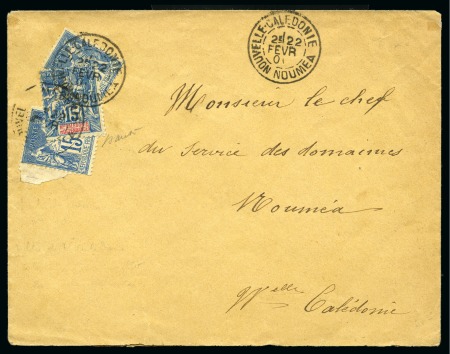 NOUVELLE-CALEDONIE
2E 22
FEVR
01
NOUMEA
15
15
Monsieur le chef
du service des domaines
Nouméa
Nelle Calédonie